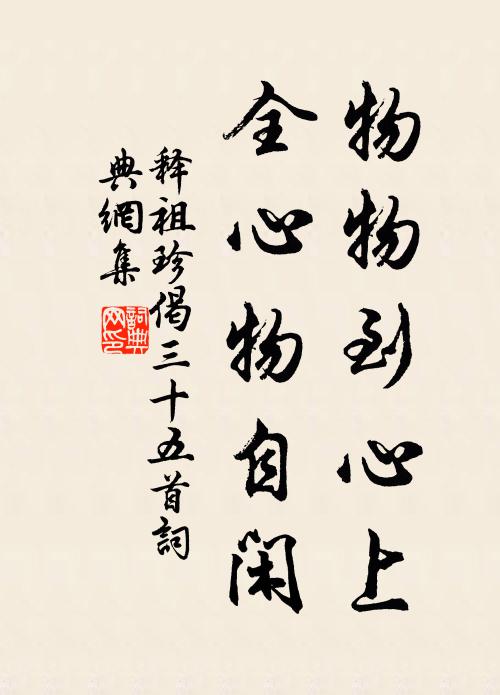 物物到心上
全心物自闲
释祖珍偈三十五首詞
典網集
詞典网印